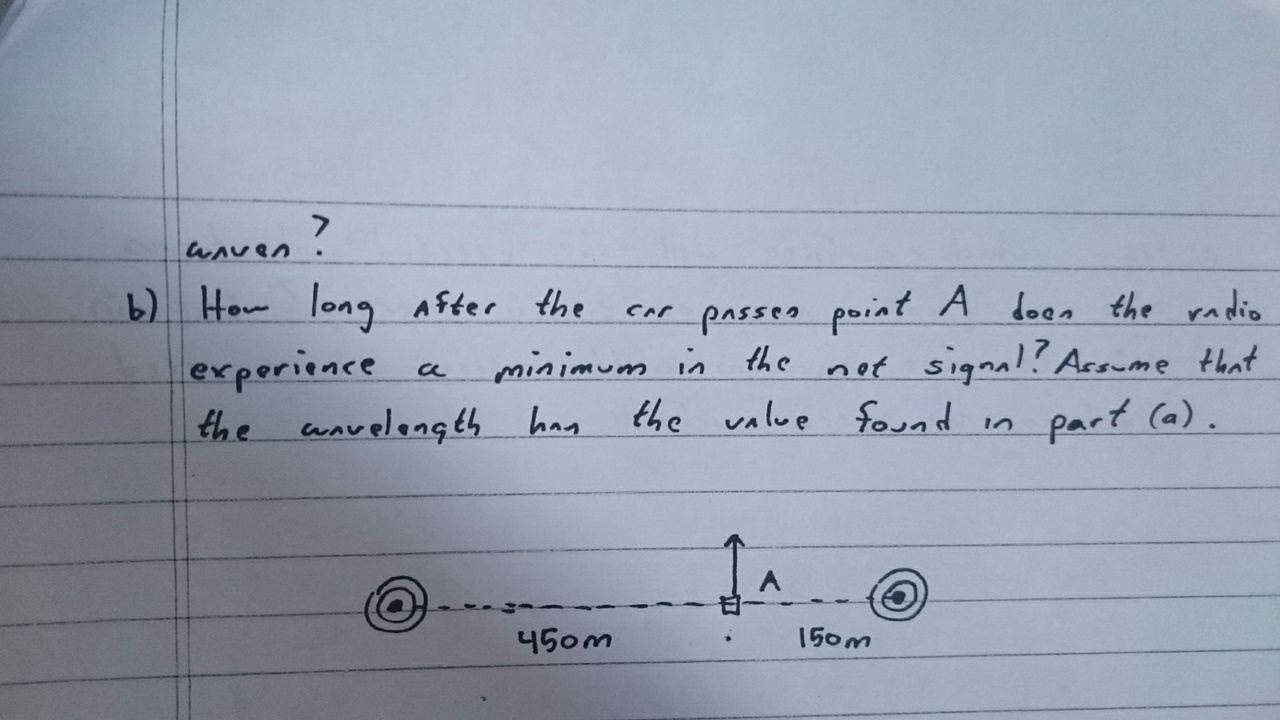 waves?
b) How long after the car passes point A does the radio
experience a minimum in the net signal? Assume that
the wavelength has the value found in part (a).
A
450m
150m